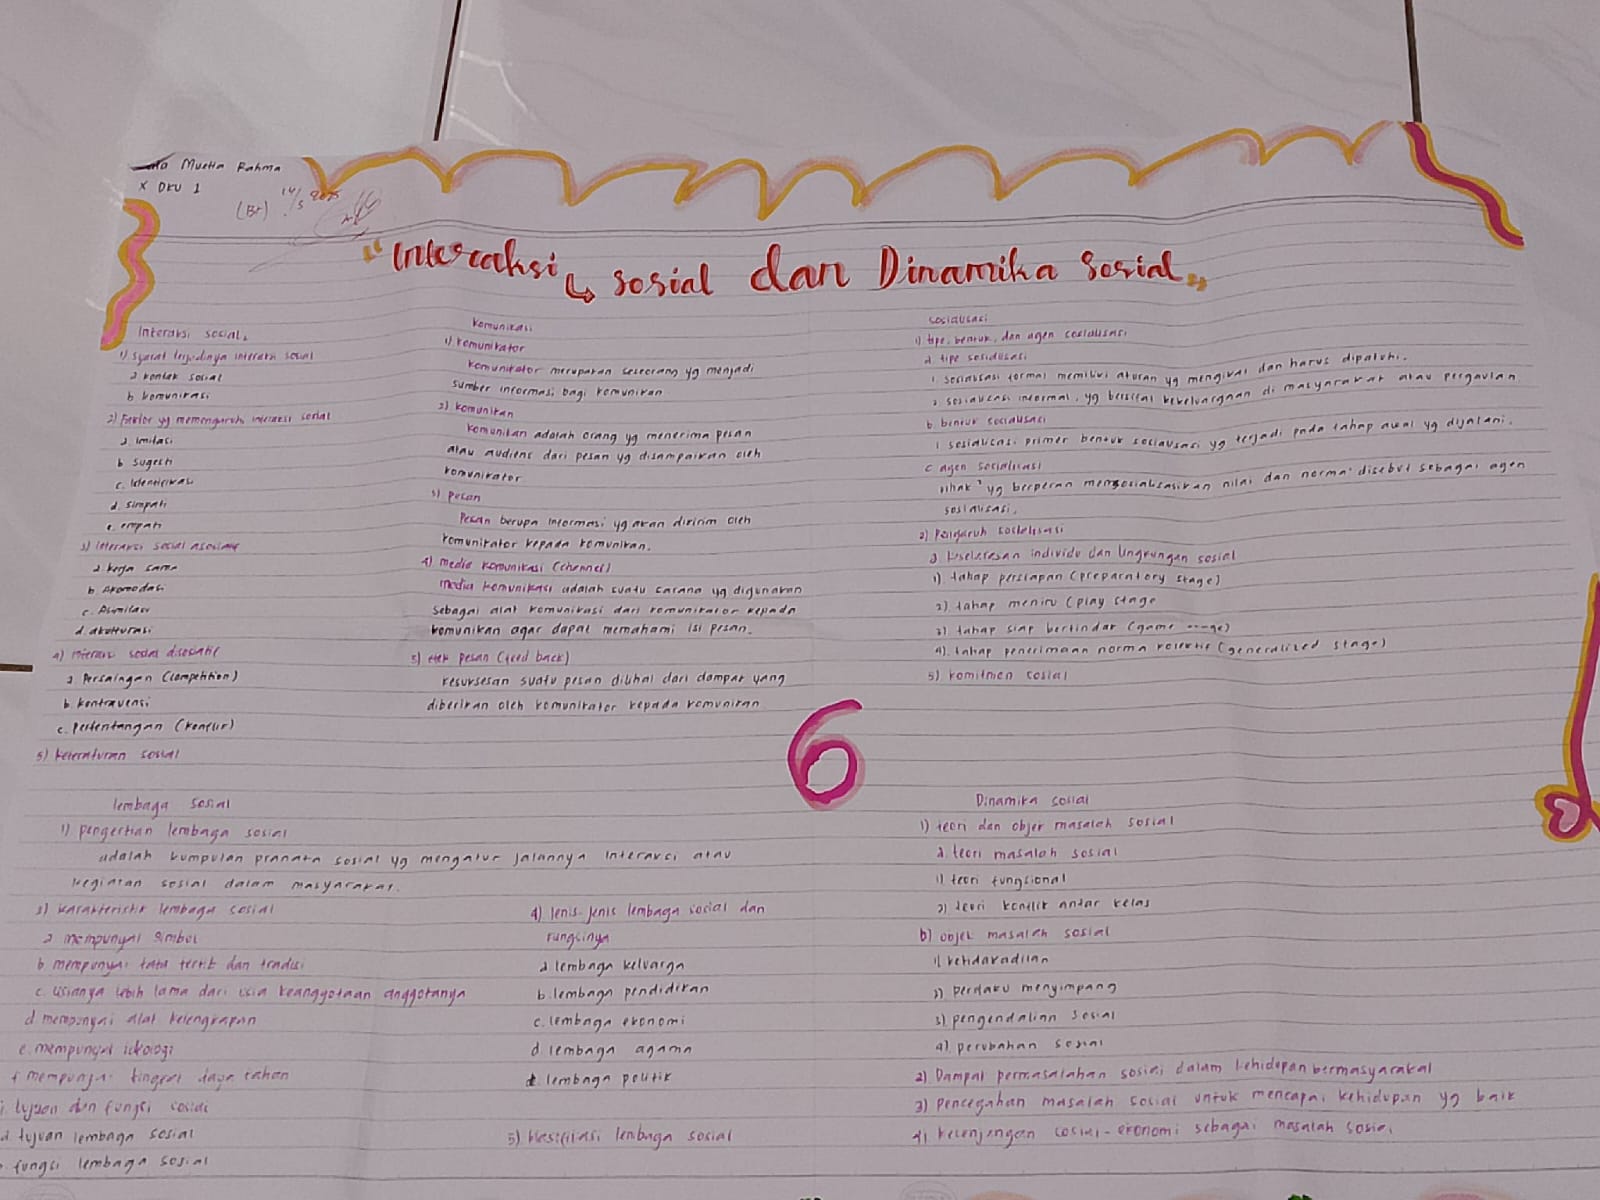 Muetia Rahma
X DKV 1
(B+) 14/5 2025
"Interaksi sosial dan Dinamika Sosial"
Interaksi social.
1) syarat terjadinya interaksi sosial
a kontak sosial
b komunikasi
2) Faktor yg memengaruhi interaksi sosial
a. imitasi
b sugesti
c. Identifikasi
d. simpati
e. empati
3) interaksi social asosiatif
a. kerja sama
b. Akomodasi
c. Asimilasi
d. akulturasi
4) interaksi sosial disosiatif
a Persaingan (competition)
b. kontravensi
c. Pertentangan (konflik)
5) keteraturan sosial
komunikasi
1) komunikator
komunikator merupakan seseorang yg menjadi
sumber informasi bagi komunikan
2) komunikan
komunikan adalah orang yg menerima pesan
atau audiens dari pesan yg disampaikan oleh
komunikator
3) pesan
Pesan berupa informasi yg akan dikirim oleh
komunikator kepada komunikan.
4) media komunikasi (channel)
media komunikasi adalah suatu sarana yg digunakan
sebagai alat komunikasi dari komunikator kepada
komunikan agar dapat memahami isi pesan.
5) efek pesan (feed back)
kesuksesan suatu pesan dilihat dari dampak yang
diberikan oleh komunikator kepada komunikan
sosialisasi
1) tipe, bentuk, dan agen sosialisasi
a. tipe sosialisasi
1. sosialisasi formal memiliki aturan yg mengikat dan harus dipatuhi.
2. sosialisasi informal, yg bersifat kekeluargaan di masyarakat atau pergaulan
b. bentuk sosialisasi
1 sosialisasi primer bentuk sosialisasi yg terjadi pada tahap awal yg dijalani.
c agen sosialisasi
pihak² yg berperan mensosialisasikan nilai dan norma disebut sebagai agen
sosialisasi.
2) Pengaruh sosialisasi
a keselarasan individu dan lingkungan sosial
1). tahap persiapan (preparatory stage)
2) tahap meniru (play stage
3) tahap siap bertindak (game
4). tahap penerimaan norma kolektif (generalized stage)
5) komitmen sosial
6
lembaga sosial
1) pengertian lembaga sosial
adalah kumpulan pranata sosial yg mengatur jalannya interaksi atau
kegiatan sosial dalam masyarakat.
3) karakteristik lembaga sosial
a mempunyai simbol
b mempunyai tata tertib dan tradisi
c. usianya lebih lama dari usia keanggotaan anggotanya
d. mempunyai alat kelengkapan
e. mempunyai ideologi
f mempunyai tingkat daya tahan
tujuan dan fungsi sosial
a tujuan lembaga sosial
fungsi lembaga sosial
4) Jenis-jenis lembaga social dan
fungsinya
a lembaga keluarga
b. lembaga pendidikan
c. lembaga ekonomi
d. lembaga agama
e lembaga politik
5) klasifikasi lembaga sosial
Dinamika sosial
1) teori dan objek masalah sosial
a. teori masalah sosial
1) teori fungsional
2) teori konflik antar kelas
b) objek masalah sosial
1) ketidakadilan
2) perilaku menyimpang
3) pengendalian sosial
4). perubahan sosial
2) Dampak permasalahan sosial dalam kehidupan bermasyarakat
3) pencegahan masalah sosial untuk mencapai kehidupan yg baik
4) kesenjangan sosial-ekonomi sebagai masalah sosial